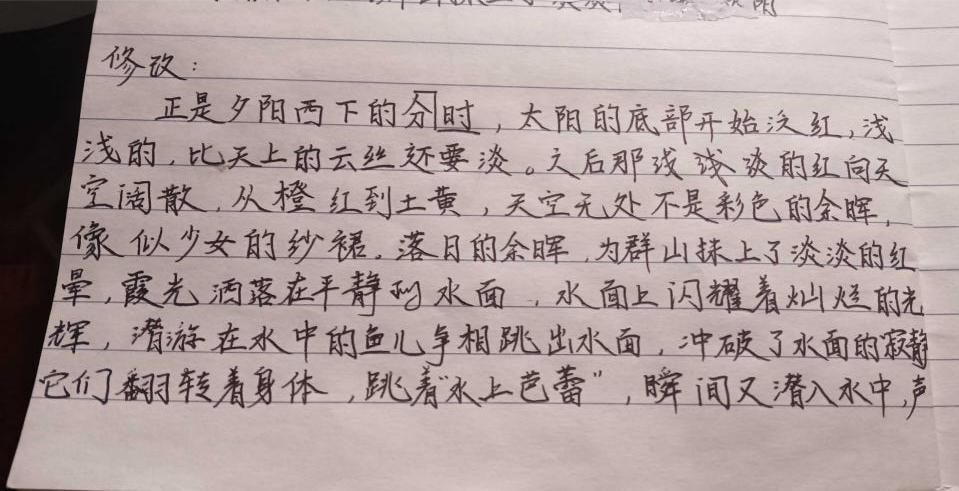 修改：
正是夕阳西下的分时，太阳的底部开始泛红，浅
浅的，比天上的云丝还要淡。之后那浅浅淡的红向天
空阔散，从橙红到土黄，天空无处不是彩色的余晖，
像似少女的纱裙。落日的余晖，为群山抹上了淡淡的红
晕，霞光洒落在平静的水面，水面上闪耀着灿烂的光
辉，潜游在水中的鱼儿争相跳出水面，冲破了水面的寂静
它们翻转着身体，跳着“水上芭蕾”，瞬间又潜入水中，声